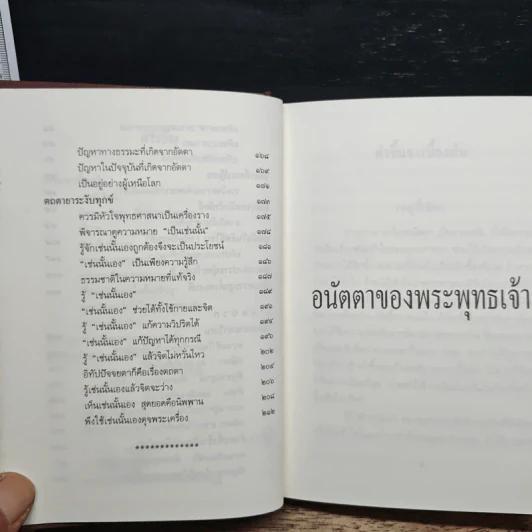 ปัญหาทางธรรมะที่เกิดจากอัตตา ๑๖๔
ปัญหาในปัจจุบันที่เกิดจากอัตตา ๑๖๙
เป็นอยู่อย่างผู้เหนือโลก ๑๗๑
ตถตายาระงับทุกข์ ๑๗๓
ควรมีหัวใจพุทธศาสนาเป็นเครื่องราง ๑๗๕
พิจารณาดูความหมาย "เป็นเช่นนั้น" ๑๗๘
รู้จักเช่นนั้นเองถูกต้องจึงจะเป็นประโยชน์ ๑๘๑
"เช่นนั้นเอง" เป็นเพียงความรู้สึก ๑๘๖
ธรรมชาติในความหมายที่แท้จริง ๑๘๗
รู้ "เช่นนั้นเอง" ๑๘๙
"เช่นนั้นเอง" ช่วยได้ทั้งใช้กายและจิต ๑๙๑
รู้ "เช่นนั้นเอง" แก้ความวิปริตได้ ๑๙๔
"เช่นนั้นเอง" แก้ปัญหาได้ทุกกรณี ๑๙๖
รู้ "เช่นนั้นเอง" แล้วจิตไม่หวั่นไหว ๒๐๒
อิทัปปัจจยตาก็คือเรื่องตถตา ๒๐๔
รู้เช่นนั้นเองแล้วจิตจะว่าง ๒๐๖
เห็นเช่นนั้นเอง สุดยอดคือนิพพาน ๒๐๘
พึงใช้เช่นนั้นเองดุจพระเครื่อง ๒๑๒
*************
อนัตตาของพระพุทธเจ้า